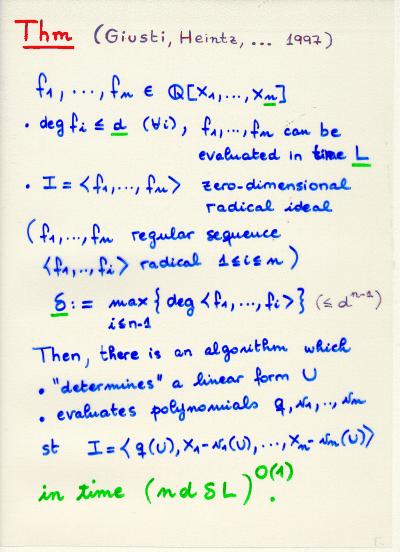 Thm (Giusti, Heintz, ... 1997)
f1, ..., fn ∈ Q[X1,...,Xn]
• deg fi ≤ d (∀i), f1,...,fn can be
evaluated in time L
• I = <f1,...,fn> zero-dimensional
radical ideal
(f1,...,fn regular sequence
<f1,...,fi> radical 1≤i≤n)
δ := max {deg <f1,...,fi>} (≤ d^(n-1))
i≤n-1
Then, there is an algorithm which
• "determines" a linear form U
• evaluates polynomials q, v1,..., vn
st I = <q(U), X1-v1(U),...,Xn-vn(U)>
in time (n d δ L)^O(1).